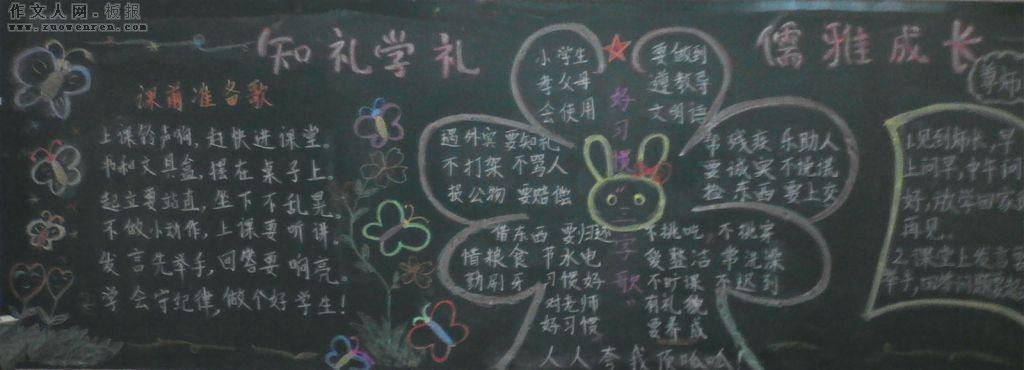 作文人网·板报
www.zuowenren.com
知礼学礼
儒雅成长
课前准备歌
上课铃声响,赶快进课堂。
书和文具盒,摆在桌子上。
起立要站直,坐下不乱晃。
不做小动作,上课要听讲。
发言先举手,回答要响亮。
学会守纪律,做个好学生!
好习惯 字歌
小学生 要做到
孝父母 遵教导
会使用 文明语
遇外宾 要知礼
不打架 不骂人
损公物 要赔偿
事残疾 乐助人
要诚实 不说谎
捡东西 要上交
借东西 要归还
惜粮食 节水电
勤刷牙 习惯好
对老师
好习惯
不挑吃 不挑穿
衣整洁 常洗澡
不旷课 不迟到
有礼貌
要养成
人人夸我
尊师
上见到师长,早
上问早,中午问
好,放学回家
再见。
2.课堂上发言要
举手,回答问题要